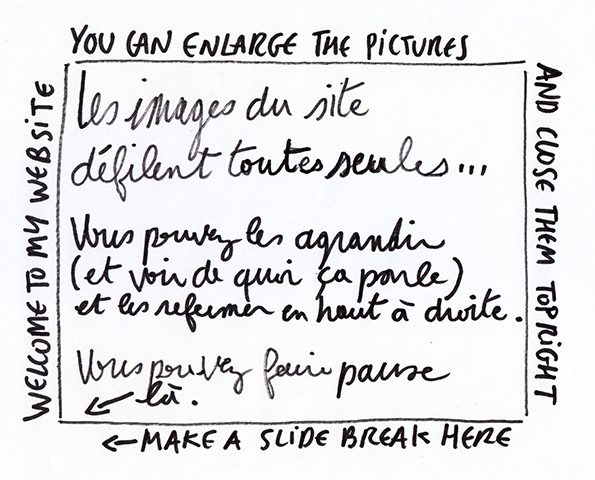 YOU CAN ENLARGE THE PICTURES
WELCOME TO MY WEBSITE
Les images du site
défilent toutes seules...
Vous pouvez les agrandir
(et voir de quoi ça parle)
et les refermer en haut à droite.
Vous pouvez faire pause
← là.
AND CLOSE THEM TOP RIGHT
← MAKE A SLIDE BREAK HERE